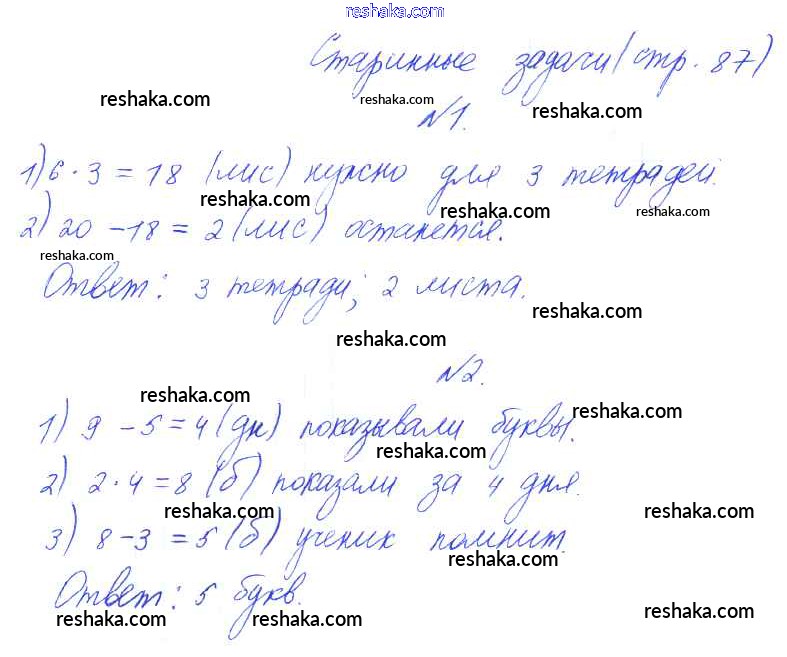 reshaka.com
Старинные задачи (стр. 87)
reshaka.com reshaka.com reshaka.com
№1.
1) 6 · 3 = 18 (лис) нужно для 3 тетрадей.
reshaka.com reshaka.com reshaka.com
2) 20 - 18 = 2 (лис) останется.
reshaka.com
Ответ: 3 тетради; 2 листа.
reshaka.com
reshaka.com
№2.
reshaka.com reshaka.com
1) 9 - 5 = 4 (дн) показывали буквы.
reshaka.com
2) 2 · 4 = 8 (б) показали за 4 дня.
reshaka.com reshaka.com
3) 8 - 3 = 5 (б) ученик помнит.
reshaka.com
Ответ: 5 букв.
reshaka.com reshaka.com reshaka.com